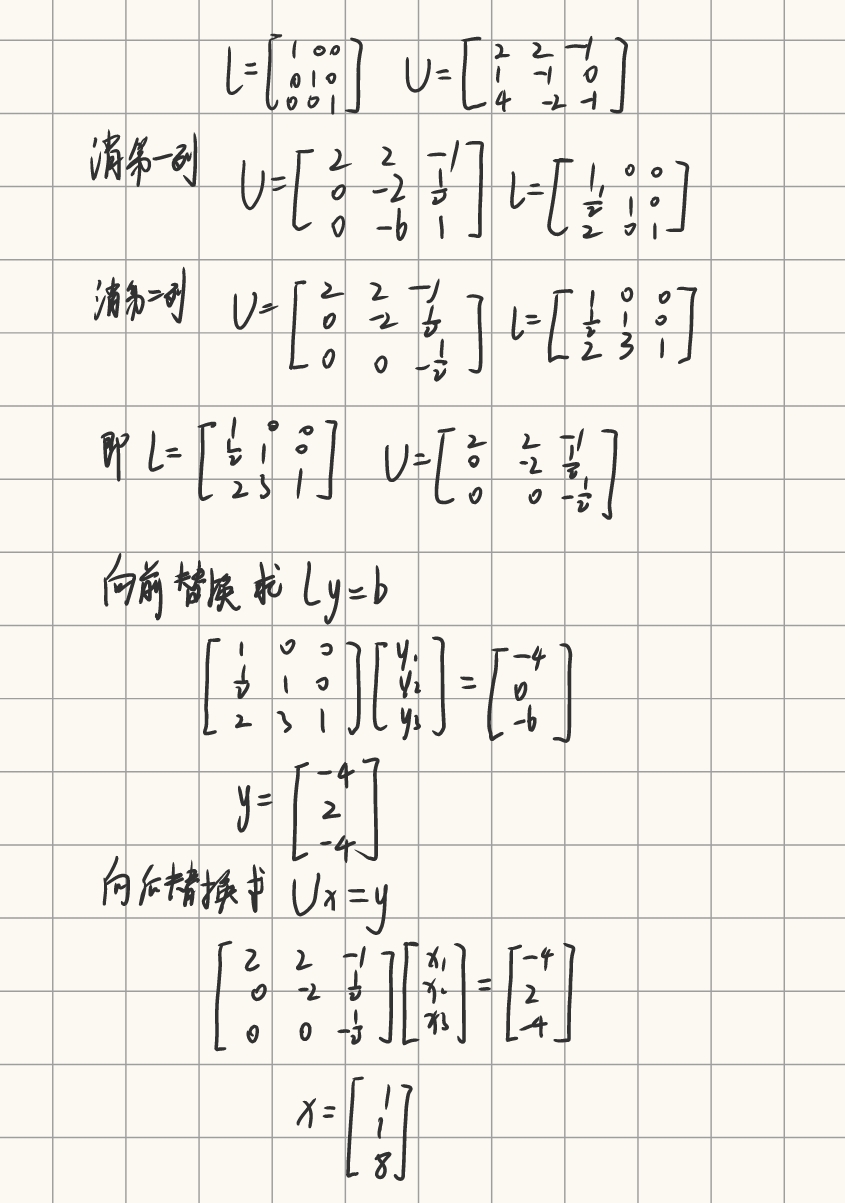 L = [1 0 0; 0 1 0; 0 0 1] U = [2 2 -1; 1 -1 0; 4 -2 -1]
消第一列 U = [2 2 -1; 0 -2 1/2; 0 -6 1] L = [1 0 0; 1/2 1 0; 2 0 1]
消第二列 U = [2 2 -1; 0 -2 1/2; 0 0 -1/2] L = [1 0 0; 1/2 1 0; 2 3 1]
即 L = [1 0 0; 1/2 1 0; 2 3 1] U = [2 2 -1; 0 -2 1/2; 0 0 -1/2]
向前替换求 Ly=b
[1 0 0; 1/2 1 0; 2 3 1] [y₁; y₂; y₃] = [-4; 0; -6]
y = [-4; 2; -4]
向后替换求 Ux=y
[2 2 -1; 0 -2 1/2; 0 0 -1/2] [x₁; x₂; x₃] = [-4; 2; -4]
x = [1; 1; 8]